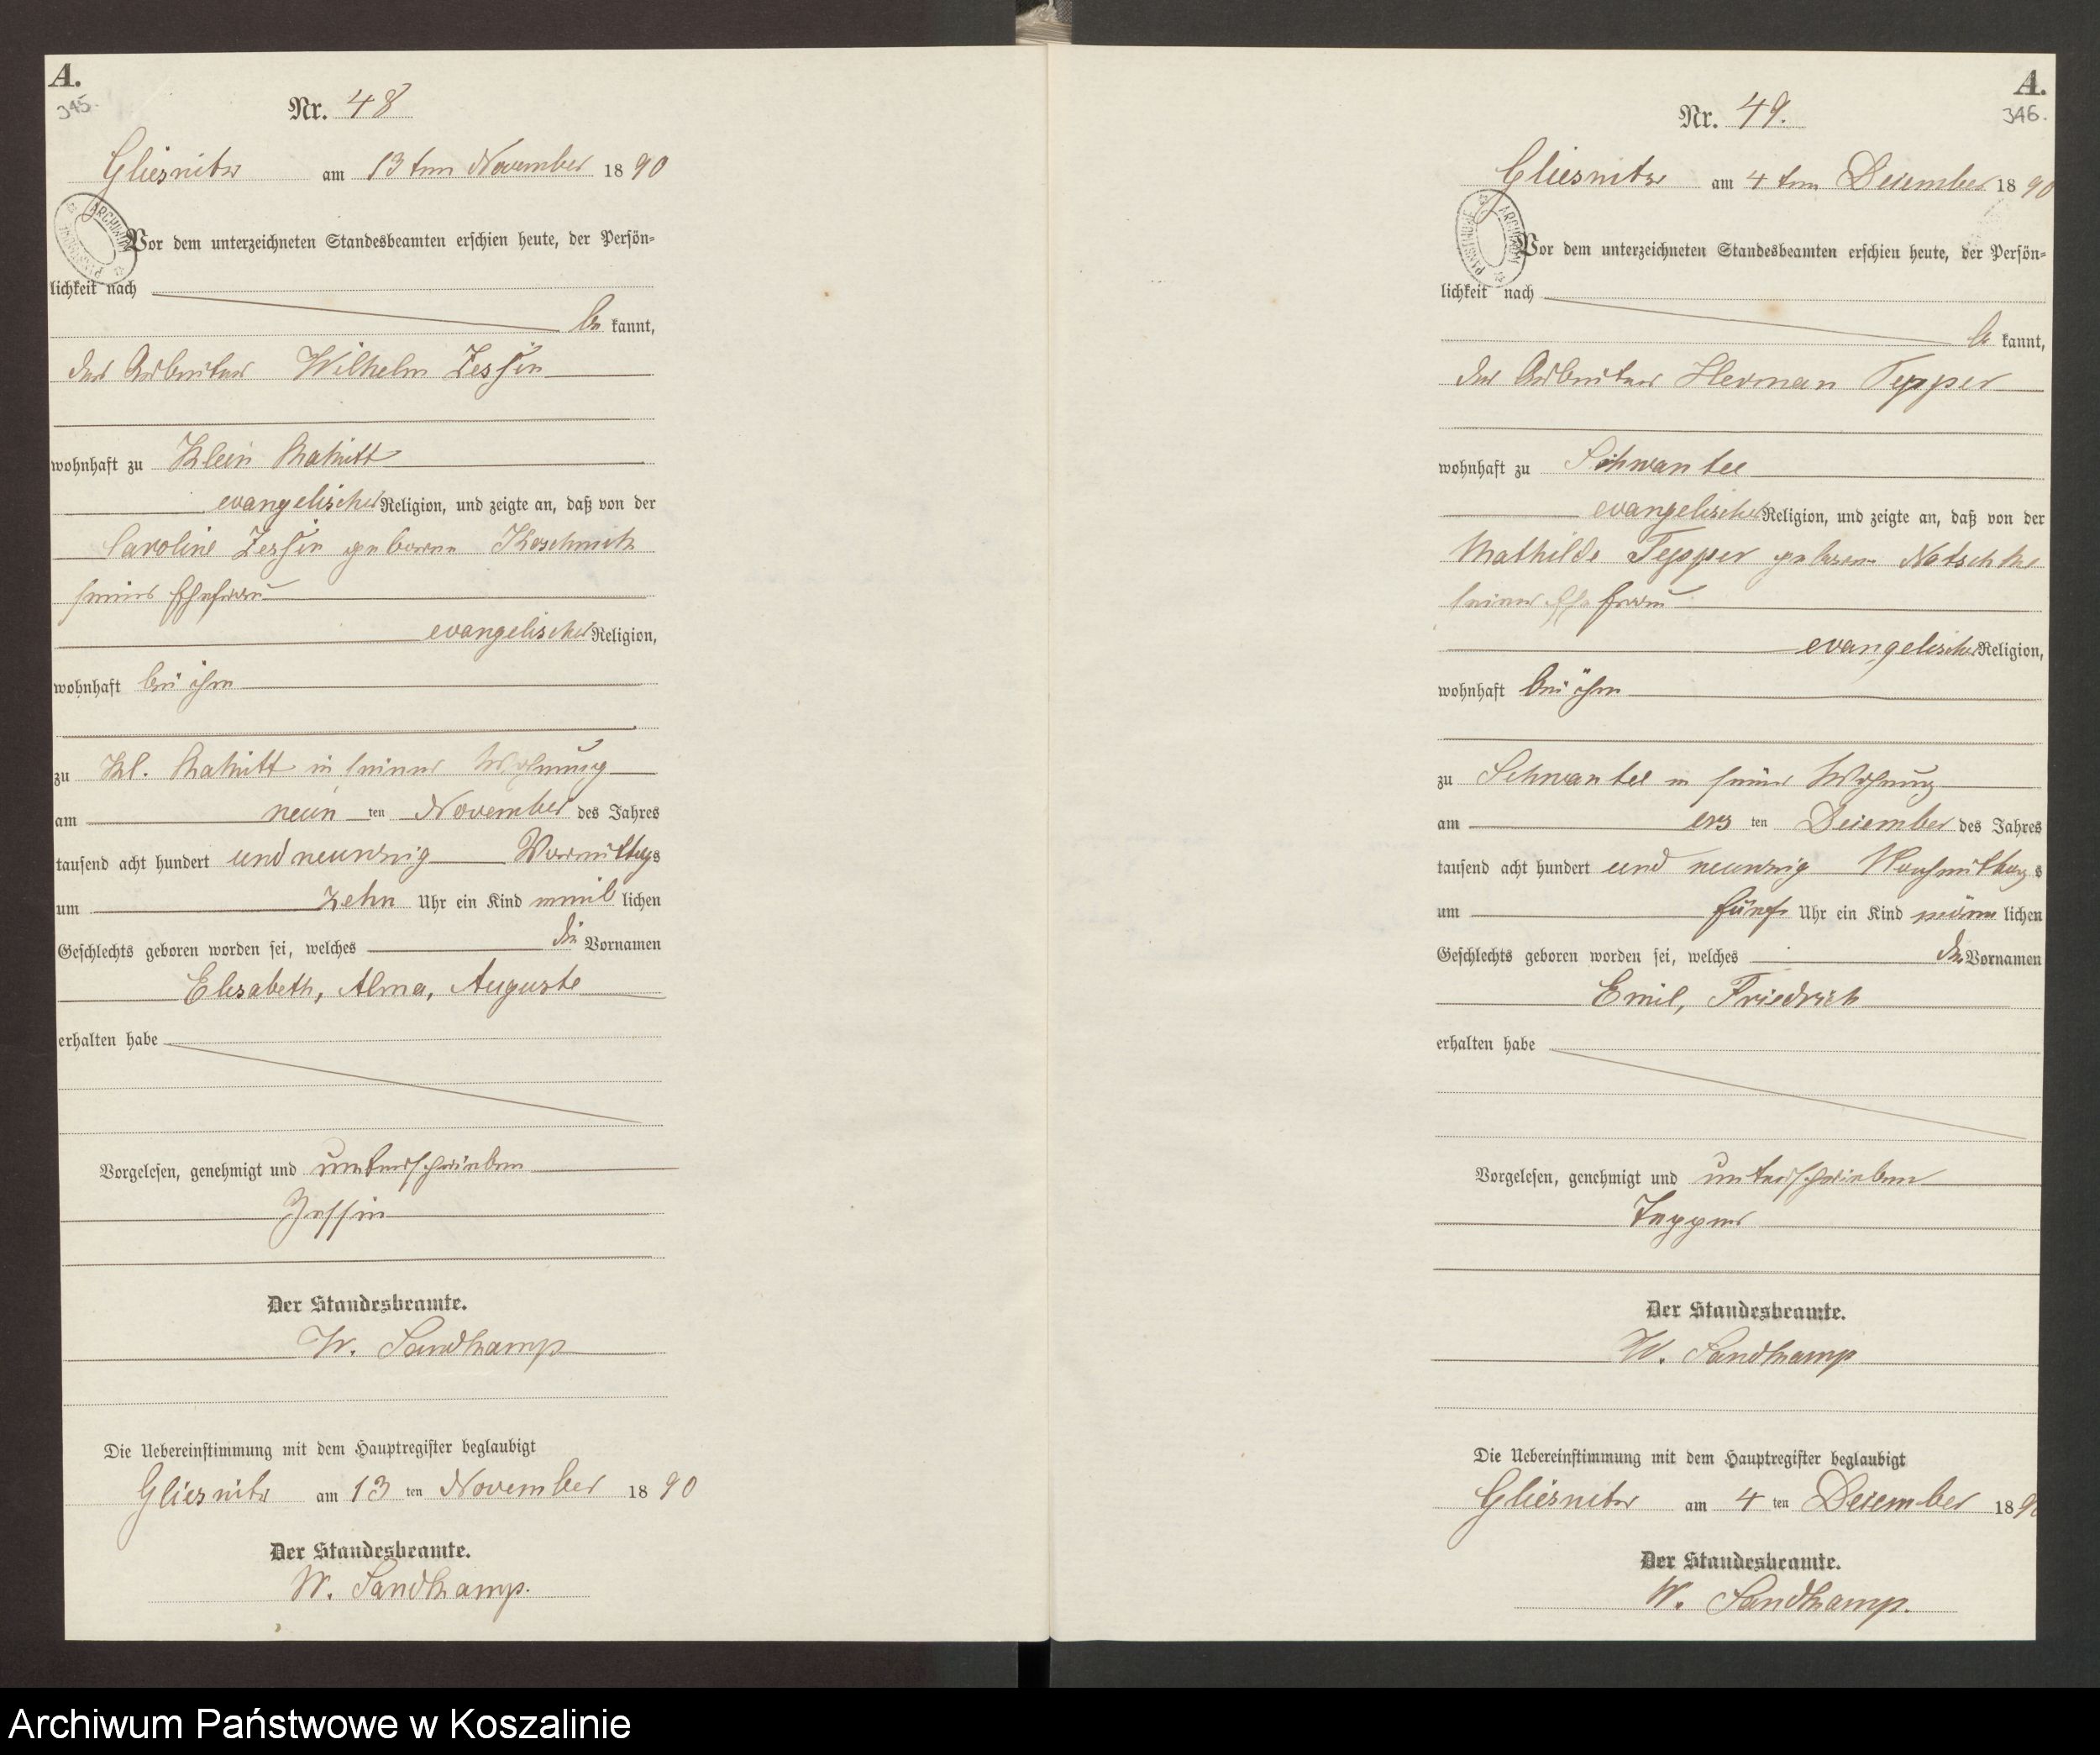 A.
345.
Nr. 48
Gliesnitz am 13 ten November 1890
ARCHIWUM PAŃSTWOWE
Vor dem unterzeichneten Standesbeamten erschien heute, der Persön=
lichkeit nach
be kannt,
der Arbeiter Wilhelm Zessin
wohnhaft zu Klein
evangelischer Religion, und zeigte an, daß von der
Caroline Zessin geborne
seiner Ehefrau
evangelischer Religion,
wohnhaft bei ihm
zu Kl. in seiner Wohnung
am neun ten November des Jahres
tausend acht hundert und neunzig Vormittags
um zehn Uhr ein Kind weib lichen
Geschlechts geboren worden sei, welches die Vornamen
Elisabeth, Alma, Auguste
erhalten habe
Vorgelesen, genehmigt und unterschrieben
Zessin
Der Standesbeamte.
W. Sandkamp
Die Uebereinstimmung mit dem Hauptregister beglaubigt
Gliesnitz am 13 ten November 1890
Der Standesbeamte.
W. Sandkamp.
A.
346.
Nr. 49.
Gliesnitz am 4 ten Dezember 1890
ARCHIWUM PAŃSTWOWE
Vor dem unterzeichneten Standesbeamten erschien heute, der Persön=
lichkeit nach
be kannt,
der Arbeiter Herman Tepper
wohnhaft zu Schwantee
evangelischer Religion, und zeigte an, daß von der
Mathilde Tepper geborene Natschke
seiner Ehefrau
evangelischer Religion,
wohnhaft bei ihm
zu Schwantee in seiner Wohnung
am ers ten Dezember des Jahres
tausend acht hundert und neunzig Nachmittags
um fünf Uhr ein Kind männ lichen
Geschlechts geboren worden sei, welches die Vornamen
Emil, Friedrich
erhalten habe
Vorgelesen, genehmigt und unterschrieben
Tepper
Der Standesbeamte.
W. Sandkamp
Die Uebereinstimmung mit dem Hauptregister beglaubigt
Gliesnitz am 4 ten Dezember 1890
Der Standesbeamte.
W. Sandkamp.
Archiwum Państwowe w Koszalinie